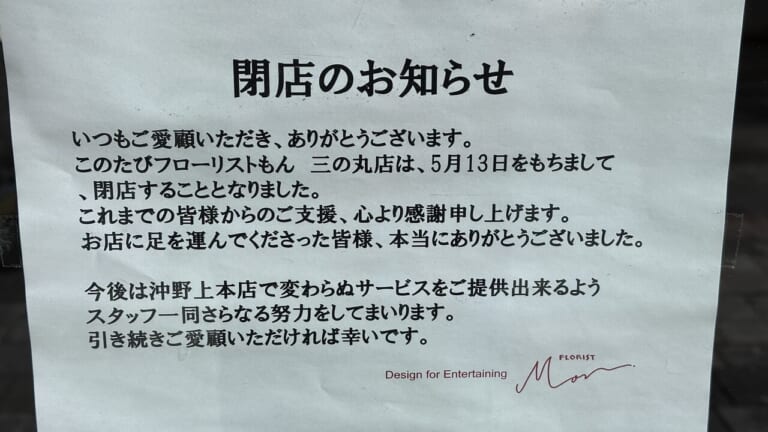 閉店のお知らせ
いつもご愛顧いただき、ありがとうございます。
このたびフローリストもん　三の丸店は、5月13日をもちまして
、閉店することとなりました。
これまでの皆様からのご支援、心より感謝申し上げます。
お店に足を運んでくださった皆様、本当にありがとうございました。
今後は沖野上本店で変わらぬサービスをご提供出来るよう
スタッフ一同さらなる努力をしてまいります。
引き続きご愛顧いただければ幸いです。
Design for Entertaining
FLORIST
Mon